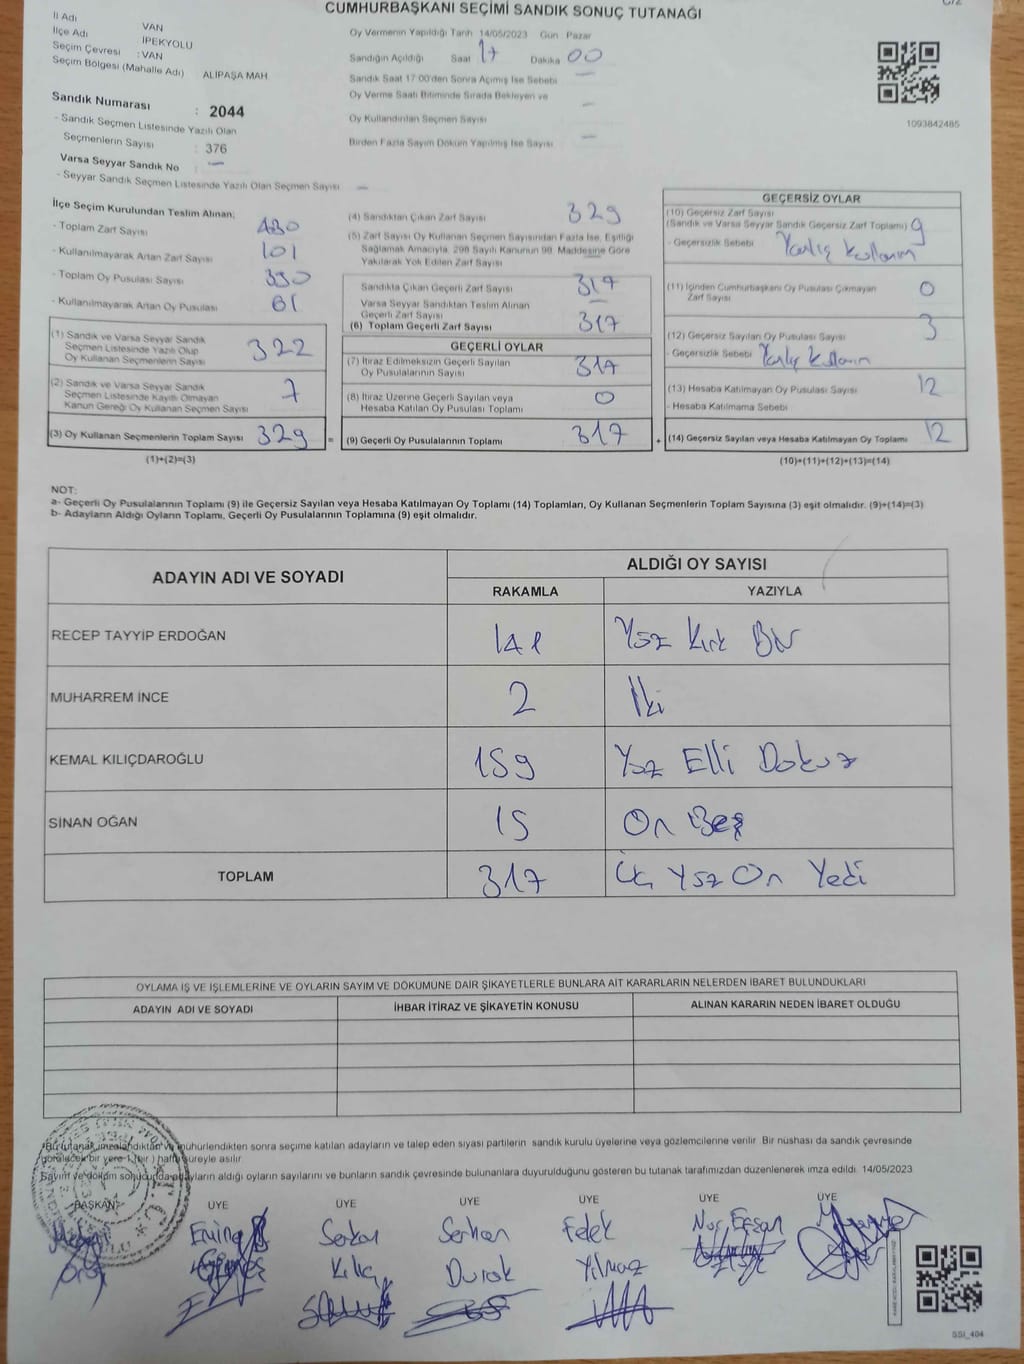 CUMHURBAŞKANI SEÇİMİ SANDIK SONUÇ TUTANAĞI
İl Adı VAN
İlçe Adı İPEKYOLU
Seçim Çevresi : VAN
Seçim Bölgesi (Mahalle Adı) ALİPAŞA MAH
Sandık Numarası : 2044
- Sandık Seçmen Listesinde Yazılı Olan
Seçmenlerin Sayısı : 376
Varsa Seyyar Sandık No —
- Seyyar Sandık Seçmen Listesinde Yazılı Olan Seçmen Sayısı —
Oy Vermenin Yapıldığı Tarih 14/05/2023 Gün Pazar
Sandığın Açıldığı Saat 17 Dakika 00
Sandık Saat 17:00'den Sonra Açılmış İse Sebebi —
Oy Verme Saati Bitiminde Sırada Bekleyen ve
Oy Kullandırılan Seçmen Sayısı —
Birden Fazla Sayım Döküm Yapılmış İse Sayısı —
1093842485
İlçe Seçim Kurulundan Teslim Alınan;
- Toplam Zarf Sayısı 430
- Kullanılmayarak Artan Zarf Sayısı 101
- Toplam Oy Pusulası Sayısı 390
- Kullanılmayarak Artan Oy Pusulası 61
(1) Sandık ve Varsa Seyyar Sandık
Seçmen Listesinde Yazılı Olup
Oy Kullanan Seçmenlerin Sayısı 322
(2) Sandık ve Varsa Seyyar Sandık
Seçmen Listesinde Kayıtlı Olmayan
Kanun Gereği Oy Kullanan Seçmen Sayısı 7
(3) Oy Kullanan Seçmenlerin Toplam Sayısı 329 =
(1)+(2)=(3)
(4) Sandıktan Çıkan Zarf Sayısı 329
(5) Zarf Sayısı Oy Kullanan Seçmen Sayısından Fazla İse, Eşitliği
Sağlamak Amacıyla, 298 Sayılı Kanunun 98. Maddesine Göre
Yakılarak Yok Edilen Zarf Sayısı
Sandıkta Çıkan Geçerli Zarf Sayısı 317
Varsa Seyyar Sandıktan Teslim Alınan
Geçerli Zarf Sayısı —
(6) Toplam Geçerli Zarf Sayısı 317
GEÇERLİ OYLAR
(7) İtiraz Edilmeksizin Geçerli Sayılan
Oy Pusulalarının Sayısı 317
(8) İtiraz Üzerine Geçerli Sayılan veya
Hesaba Katılan Oy Pusulası Toplamı 0
(9) Geçerli Oy Pusulalarının Toplamı 317 +
GEÇERSİZ OYLAR
(10) Geçersiz Zarf Sayısı
(Sandık ve Varsa Seyyar Sandık Geçersiz Zarf Toplamı) 9
- Geçersizlik Sebebi Yanlış kullanım
(11) İçinden Cumhurbaşkanı Oy Pusulası Çıkmayan
Zarf Sayısı 0
(12) Geçersiz Sayılan Oy Pusulası Sayısı 3
- Geçersizlik Sebebi Yanlış kullanım
(13) Hesaba Katılmayan Oy Pusulası Sayısı 12
- Hesaba Katılmama Sebebi
(14) Geçersiz Sayılan veya Hesaba Katılmayan Oy Toplamı 12
(10)+(11)+(12)+(13)=(14)
NOT:
a- Geçerli Oy Pusulalarının Toplamı (9) ile Geçersiz Sayılan veya Hesaba Katılmayan Oy Toplamı (14) Toplamları, Oy Kullanan Seçmenlerin Toplam Sayısına (3) eşit olmalıdır. (9)+(14)=(3)
b- Adayların Aldığı Oyların Toplamı, Geçerli Oy Pusulalarının Toplamına (9) eşit olmalıdır.
ADAYIN ADI VE SOYADI ALDIĞI OY SAYISI
RAKAMLA YAZIYLA
RECEP TAYYİP ERDOĞAN 141 Yüz Kırk Bir
MUHARREM İNCE 2 İki
KEMAL KILIÇDAROĞLU 159 Yüz Elli Dokuz
SİNAN OĞAN 15 On Beş
TOPLAM 317 Üç Yüz On Yedi
OYLAMA İŞ VE İŞLEMLERİNE VE OYLARIN SAYIM VE DÖKÜMÜNE DAİR ŞİKAYETLERLE BUNLARA AİT KARARLARIN NELERDEN İBARET BULUNDUKLARI
ADAYIN ADI VE SOYADI İHBAR İTİRAZ VE ŞİKAYETİN KONUSU ALINAN KARARIN NEDEN İBARET OLDUĞU
Bu tutanak imzalandıktan ve mühürlendikten sonra seçime katılan adayların ve talep eden siyasi partilerin sandık kurulu üyelerine veya gözlemcilerine verilir. Bir nüshası da sandık çevresinde
görülecek bir yere 1 (bir) hafta süreyle asılır.
Sayım ve döküm sonucunda adayların aldığı oyların sayılarını ve bunların sandık çevresinde bulunanlara duyurulduğunu gösteren bu tutanak tarafımızdan düzenlenerek imza edildi. 14/05/2023
BAŞKAN ÜYE ÜYE ÜYE ÜYE ÜYE ÜYE
Emine Serkan Serhan Felek
Güneş Kılıç Durak Yılmaz
SSİ_404